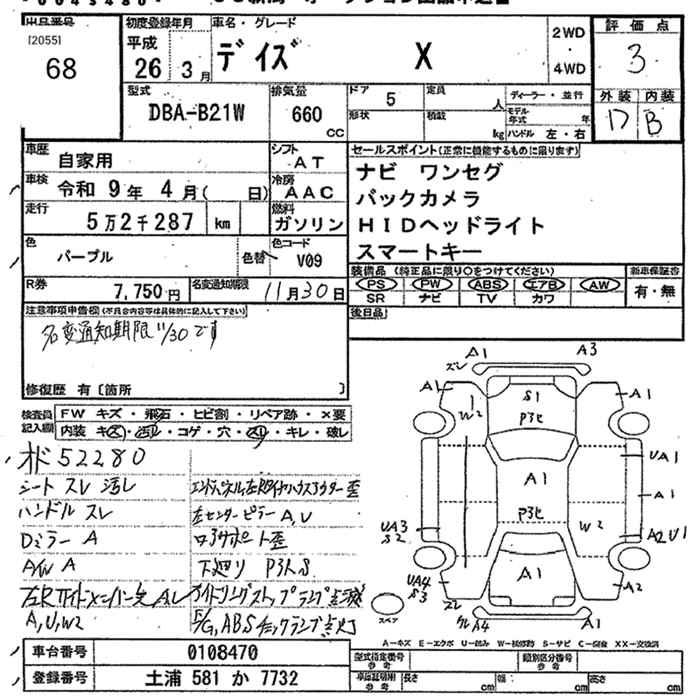 出品番号
[2055]
68
初度登録年月
平成
26 3月
車名・グレード
デイズ X
2WD
・
4WD
評価点
3
外装 内装
D B
型式
DBA-B21W
排気量
660
cc
ドア 5
形状
定員 人
積載 kg
ディーラー・並行
モデル年式 年
ハンドル 左・右
車歴 自家用
車検 令和 9年 4月( 日)
走行 5万2千287 km
色 パープル 色替
R券 7,750円
シフト AT
冷房 AAC
燃料 ガソリン
色コード V09
名変通知期限 11月30日
セールスポイント(正常に機能するものに限ります)
ナビ ワンセグ
バックカメラ
HIDヘッドライト
スマートキー
装備品 (純正品に限り○をつけてください)
PS PW ABS エアB AW
SR ナビ TV カワ
新車保証書
有・無
後日品
注意事項申告欄(不具合内容等は具体的に記入して下さい)
名変通知期限 11/30です
修復歴 有〔箇所 〕
検査員記入欄
FW キズ・飛石・ヒビ割・リペア跡・×要
内装 キズ・汚レ・コゲ・穴・スリ・キレ・破レ
オド 52280
シート スレ 汚レ
ハンドル スレ
Dミラー A
A/W A
A,U,W2
左センターピラー A,U
下廻り P跡 S
F/G,ABSチェックランプ点灯
A1 A3
ズレ
A1 S1 A1
W2 P跡
UA1
A1 A1
P跡
UA3 W2 A2 U1
S2
A1
UA4 A2
S3
ズレ A4 A1
スペア
A−キズ E−エクボ U−凹み W−補修跡 S−サビ C−腐食 XX−交換済
車台番号 0108470
登録番号 土浦 581 か 7732
型式指定番号
参考
類別区分番号
参考
車庫証明用
参考
長さ cm 幅: cm 高さ cm